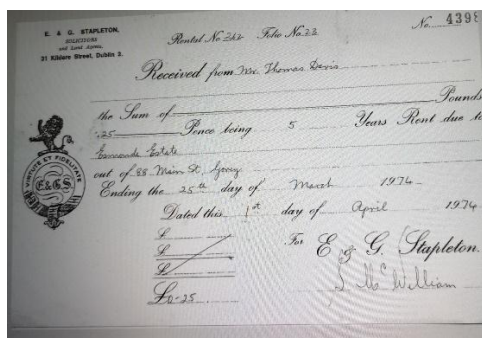 E. & G. STAPLETON,
SOLICITORS
and Land Agents,
31 Kildare Street, Dublin 2.
Rental No 262 Folio No 23
No. 4398
Received from Mr. Thomas Davis
the Sum of Pounds
.25 Pence being 5 Years Rent due to
Esmonde Estate
out of 88 Main St, Gorey
Ending the 25th day of March 1974
Dated this 1st day of April 1974
VIRTUTE ET FIDELITATE
E.&G.S.
£
£
£
£0-25
For E & G. Stapleton.
S McWilliam